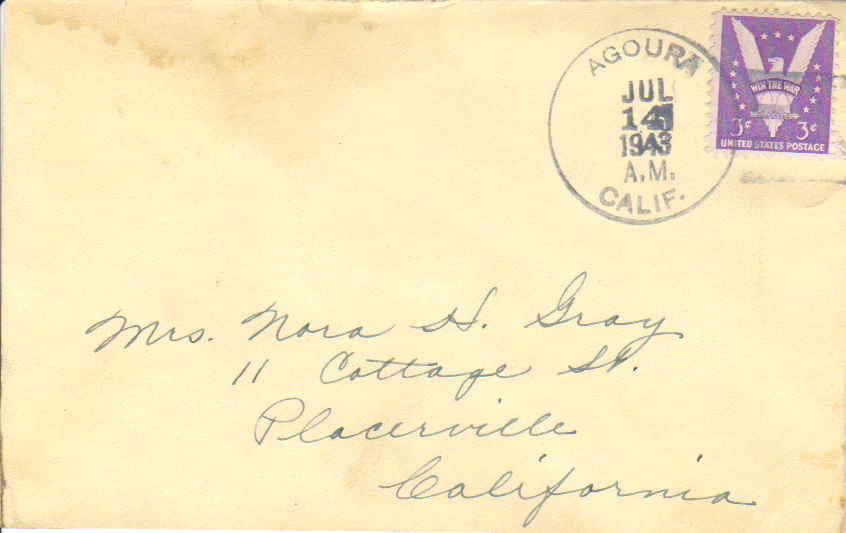 AGOURA
JUL
14
1943
A.M.
CALIF.
WIN THE WAR
3¢ 3¢
UNITED STATES POSTAGE
Mrs. Nora H. Gray
11 Cottage St.
Placerville
California